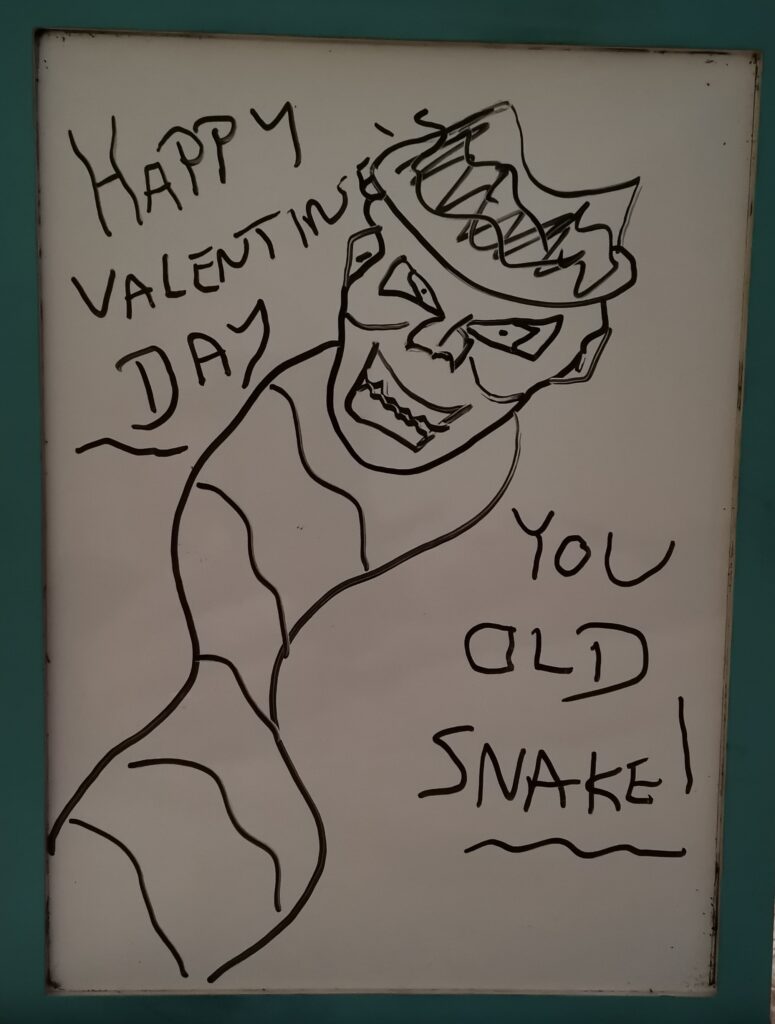 HAPPY
VALENTINE'S
DAY
YOU
OLD
SNAKE!